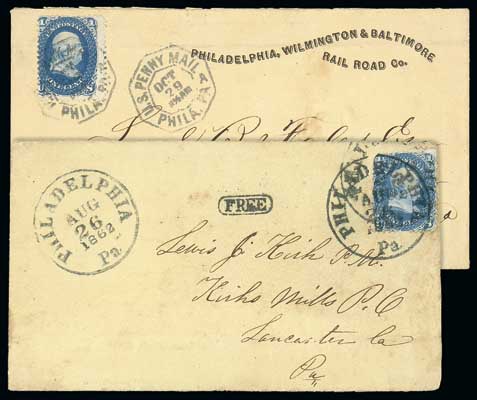 PHILADELPHIA, WILMINGTON & BALTIMORE
RAIL ROAD Co.
U.S. PENNY MAIL
OCT
29
PHILA. PA
PHILADELPHIA
AUG
26
1862
Pa.
FREE
PHILADELPHIA
Pa.
Lewis J. Kirk P.M.
Kirks Mills P.O
Lancaster Co
Pa